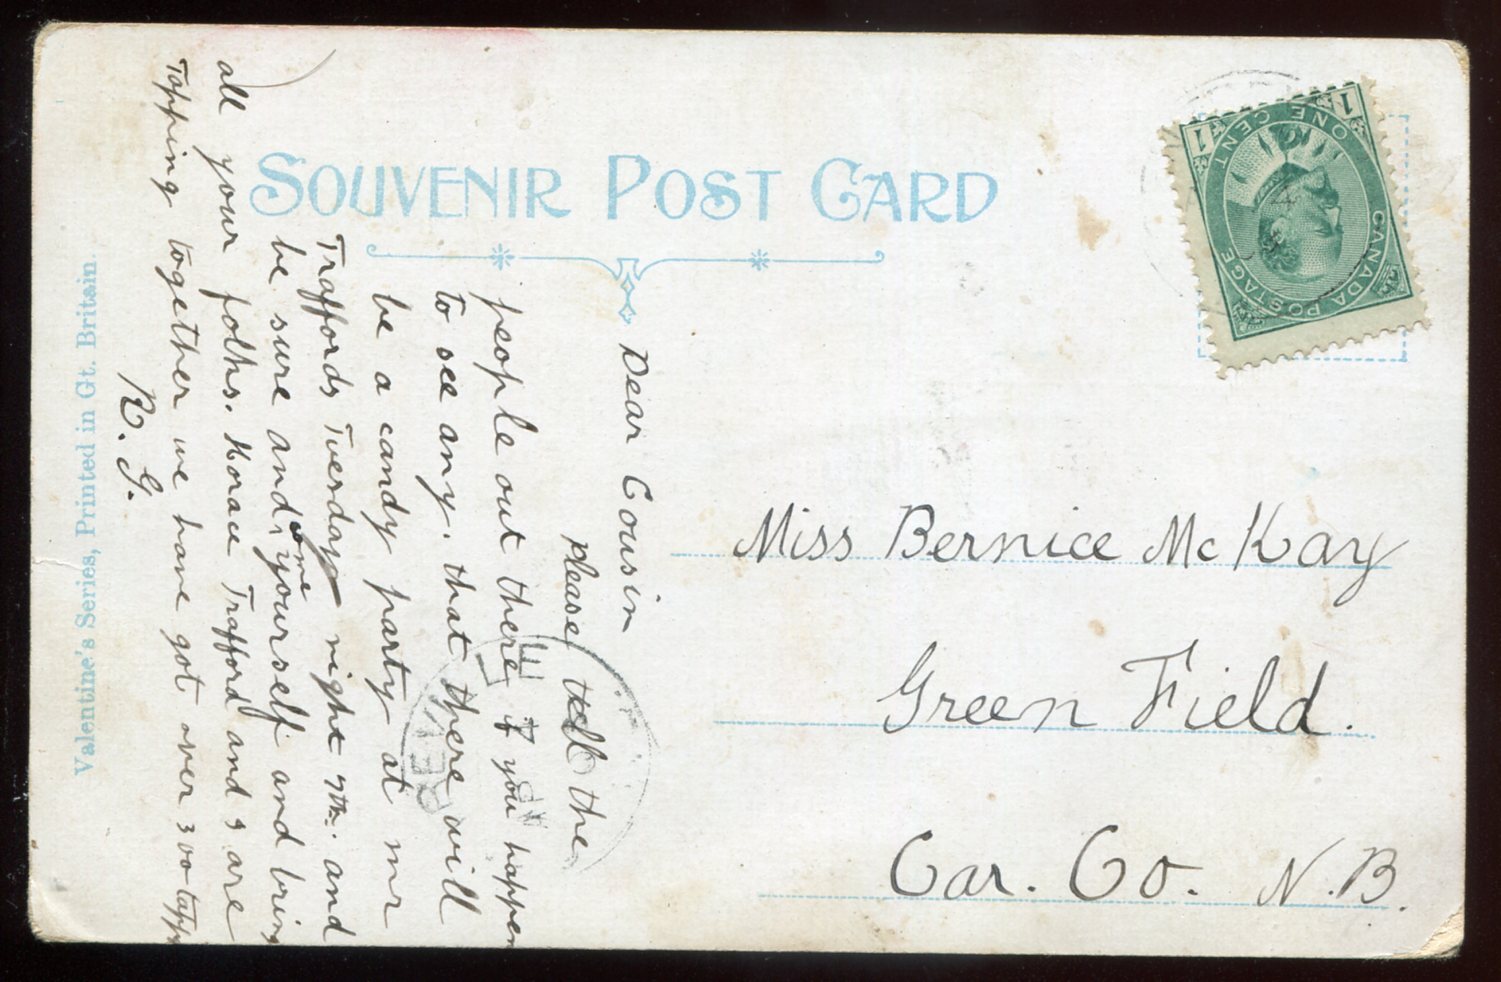 SOUVENIR POST CARD
CANADA POSTAGE
ONE CENT
1 1
Miss Bernice McKay
Green Field.
Car. Co. N.B.
Dear Cousin
Please tell the
people out there if you happen
to see any. that there will
be a candy party at mr
Traffords Tuesday night 7th. and
be sure and come yourself and bring
all your folks. Horace Trafford and I are
Tapping together we have got over 300 tapp
R. G.
Valentine's Series, Printed in Gt. Britain.